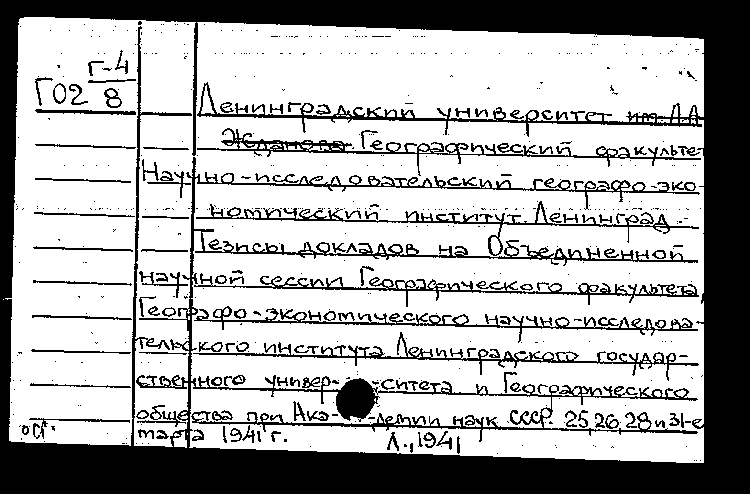 Г-4
Г02 8
Ленинградский университет им А.А
Жданова Географический факультет
Научно-исследовательский географо-эко-
номический институт. Ленинград.
Тезисы докладов на Объединенной
научной сессии Географического факультета,
Географо-экономического научно-исследова-
тельского института Ленинградского государ-
ственного универ- -ситета и Географического
общества при Ака- -демии наук СССР. 25,26,28 и 31-е
марта 1941 г. Л., 1941